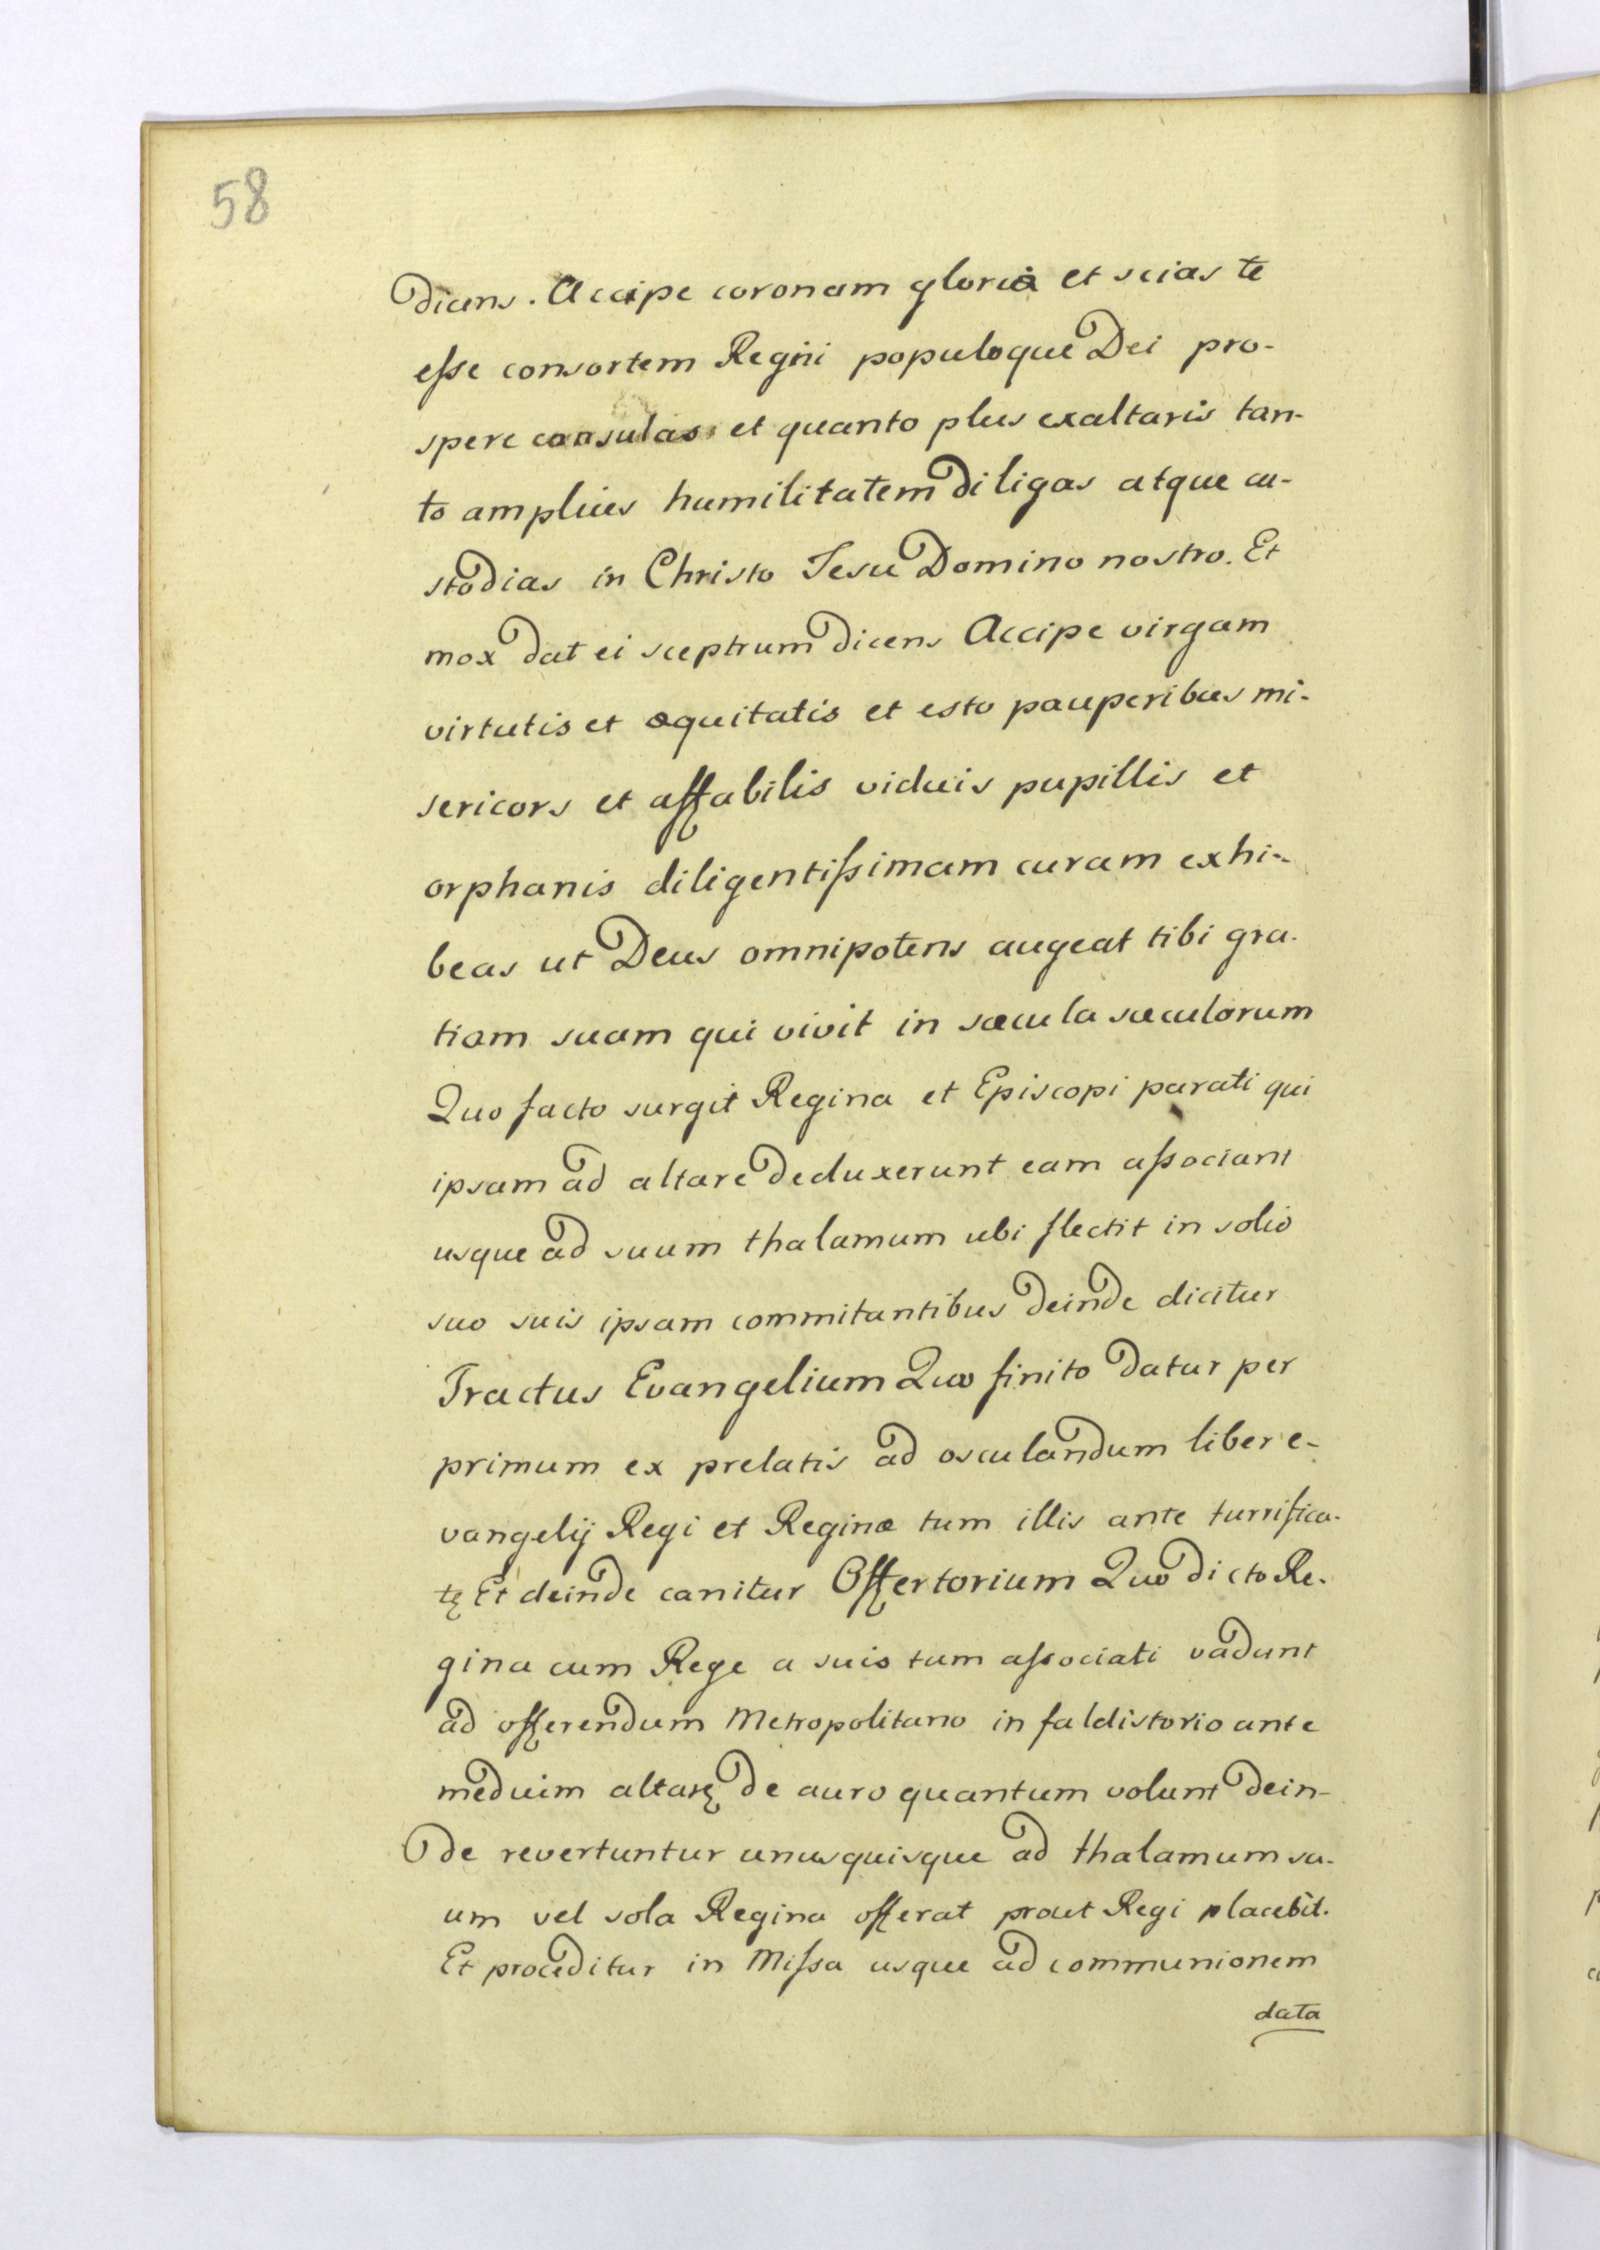 58
dicens. Accipe coronam gloriæ et scias te
esse consortem Regni populoque Dei pro-
spere consulas et quanto plus exaltaris tan-
to amplius humilitatem diligas atque cu-
stodias in Christo Jesu Domino nostro. Et
mox dat ei sceptrum dicens Accipe virgam
virtutis et æquitatis et esto pauperibus mi-
sericors et affabilis viduis pupillis et
orphanis diligentissimam curam exhi-
beas ut Deus omnipotens augeat tibi gra-
tiam suam qui vivit in sæcula sæculorum
Quo facto surgit Regina et Episcopi parati qui
ipsam ad altare deduxerunt eam associant
usque ad suum thalamum ubi flectit in solio
suo suis ipsam commitantibus deinde dicitur
Tractus Evangelium Quo finito datur per
primum ex prelatis ad osculandum liber e-
vangelij Regi et Reginæ tum illis ante turrifica-
tę Et deinde canitur Offertorium Quo dicto Re-
gina cum Rege a suis tum associati vadunt
ad offerendum Metropolitano in faldistorio ante
medium altarę de auro quantum volunt dein-
de revertuntur unusquisque ad thalamum su-
um vel sola Regina offerat prout Regi placebit.
Et proceditur in Missa usque ad communionem
data